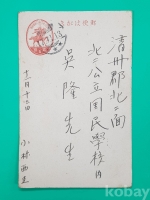 郵便はがき
清州郡北二面
北二公立国民學校內
吳隆先生
十二月十三日
小林
kobay